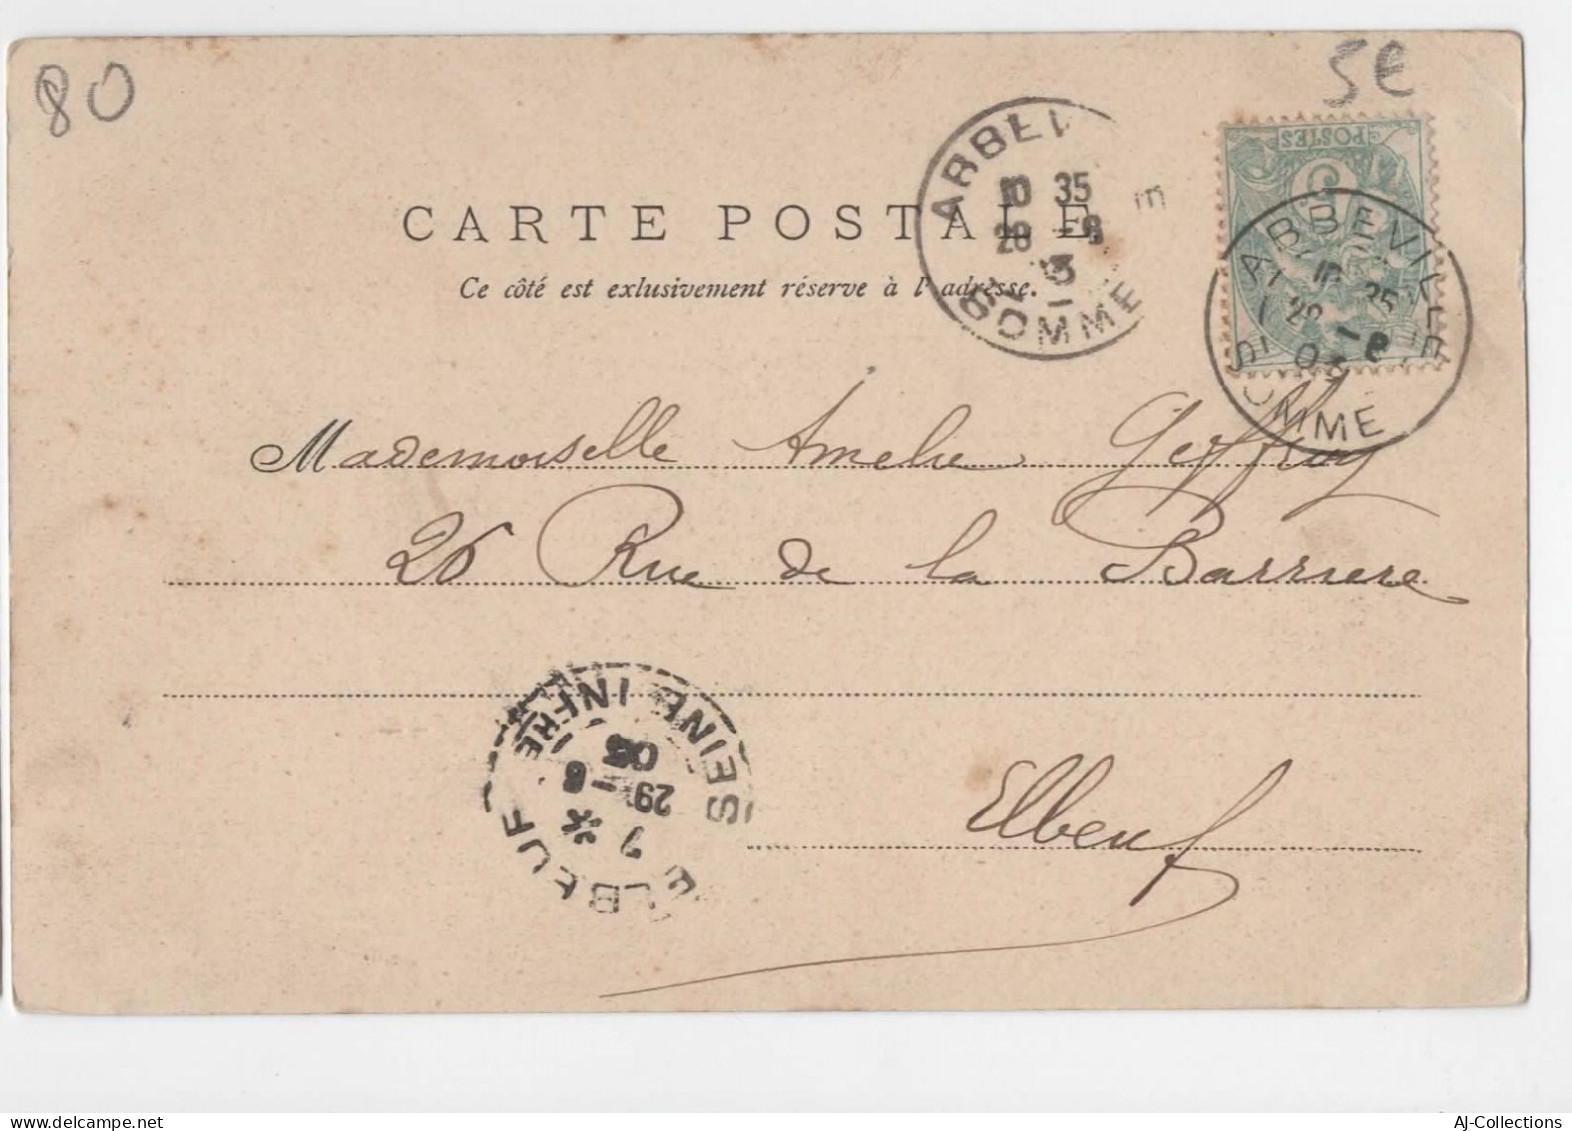 80
5€
POSTES
5
ABBEVI
10 35
28 -8
03
SOMME
ABBEVILLE
10 35
28 -8
03
SOMME
CARTE POSTALE
Ce côté est exlusivement réserve à l'adresse.
Mademoiselle Amelie Geffroy
26 Rue de la Barriere
Elbeuf
ELBEUF
SEINE INFRE
7 *
29 - 8
03
AJ-Collections